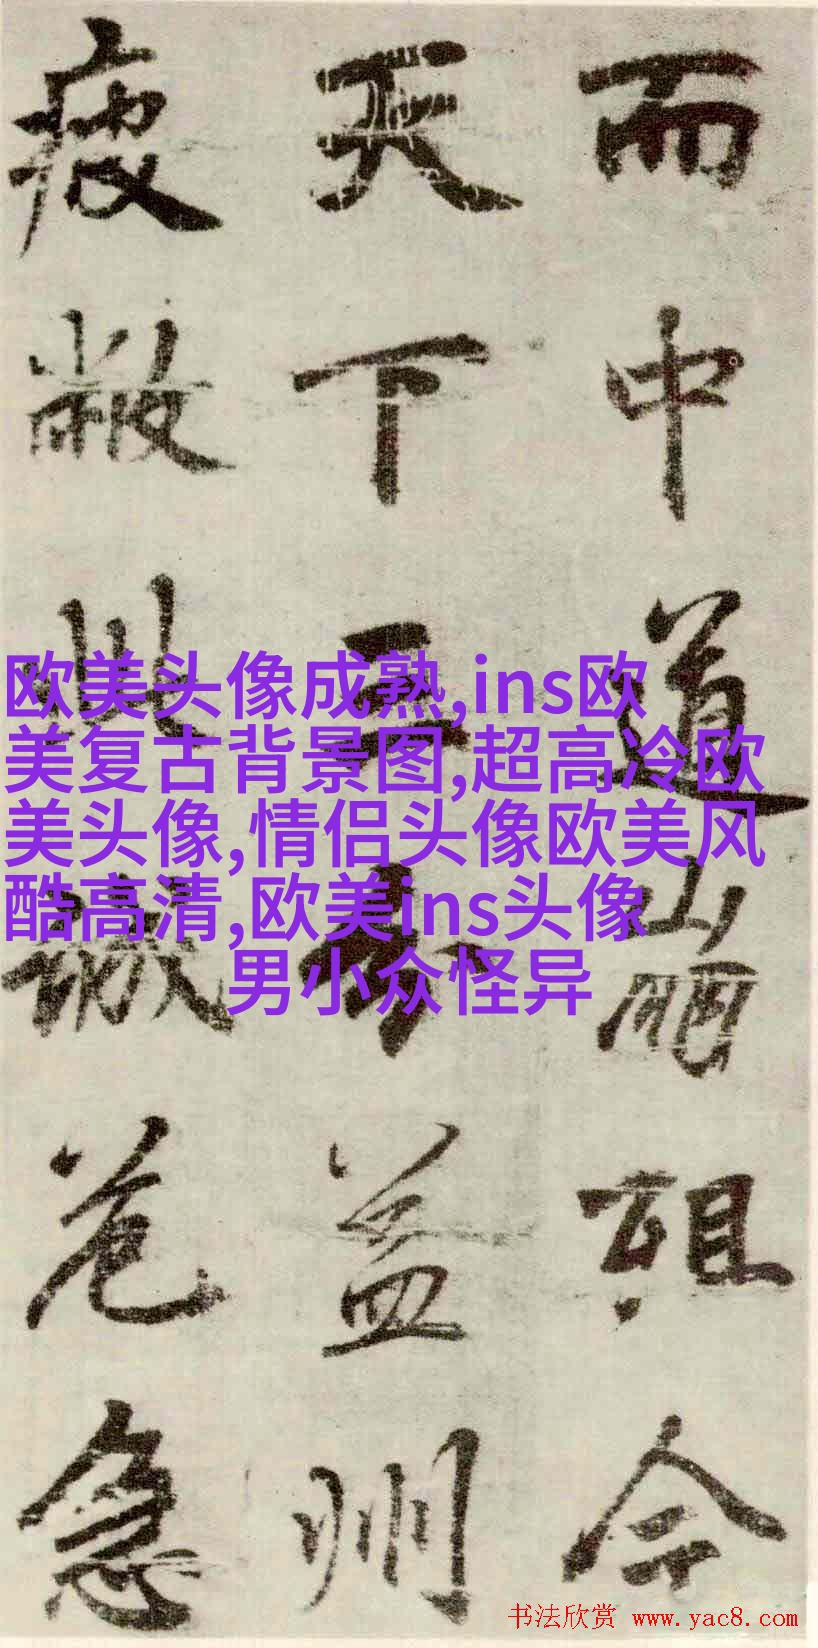 而中道崩殂今
天下三分益州
疲敝此誠危急
欧美头像成熟,ins欧
美复古背景图,超高冷欧
美头像,情侣头像欧美风
酷高清,欧美ins头像
男小众怪异
书法欣赏 www.yac8.com